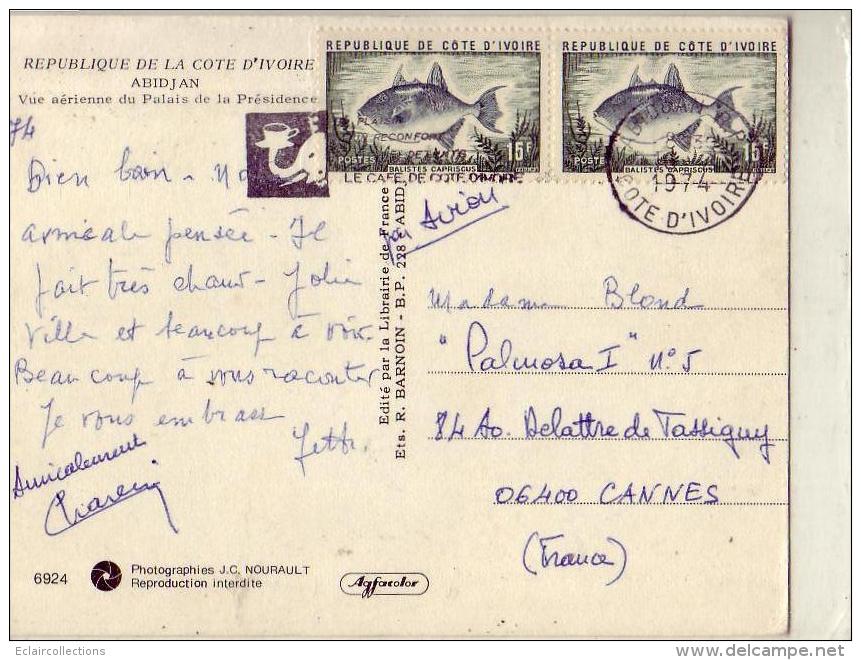 REPUBLIQUE DE LA COTE D'IVOIRE
ABIDJAN
Vue aérienne du Palais de la Présidence
REPUBLIQUE DE CÔTE D'IVOIRE
POSTES
BALISTES CAPRISCUS
15F
REPUBLIQUE DE CÔTE D'IVOIRE
POSTES
BALISTES CAPRISCUS
15F
RECONFORT
LE CAFE DE COTE D'IVOIRE
1974
COTE D'IVOIRE
74
Bien
amicale pensée - Il
fait très chaud - Jolie
ville et beaucoup à voir
Beaucoup à vous raconter
Je vous embrasse
Amicalement
Par Avion
Edité par la Librairie de France
Ets. R. BARNOIN - B.P. 228 ABIDJ
Madame Blond
"Palmosa I" n°5
84 Av. Delattre de Tassigny
06400 CANNES
(France)
6924
Photographies J.C. NOURAULT
Reproduction interdite
Agfacolor
Eclaircollections
delcampe.net